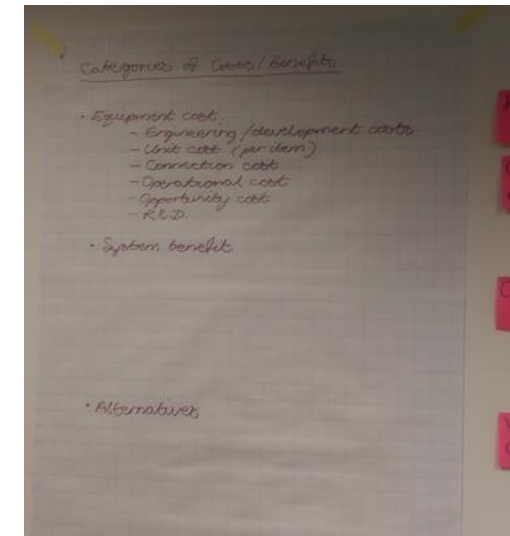 Categories of Costs / Benefits
• Equipment cost.
- Engineering / development costs.
- Unit cost (per item)
- Connection cost
- Operational cost
- Opportunity cost
- R&D.
• System benefit
• Alternatives